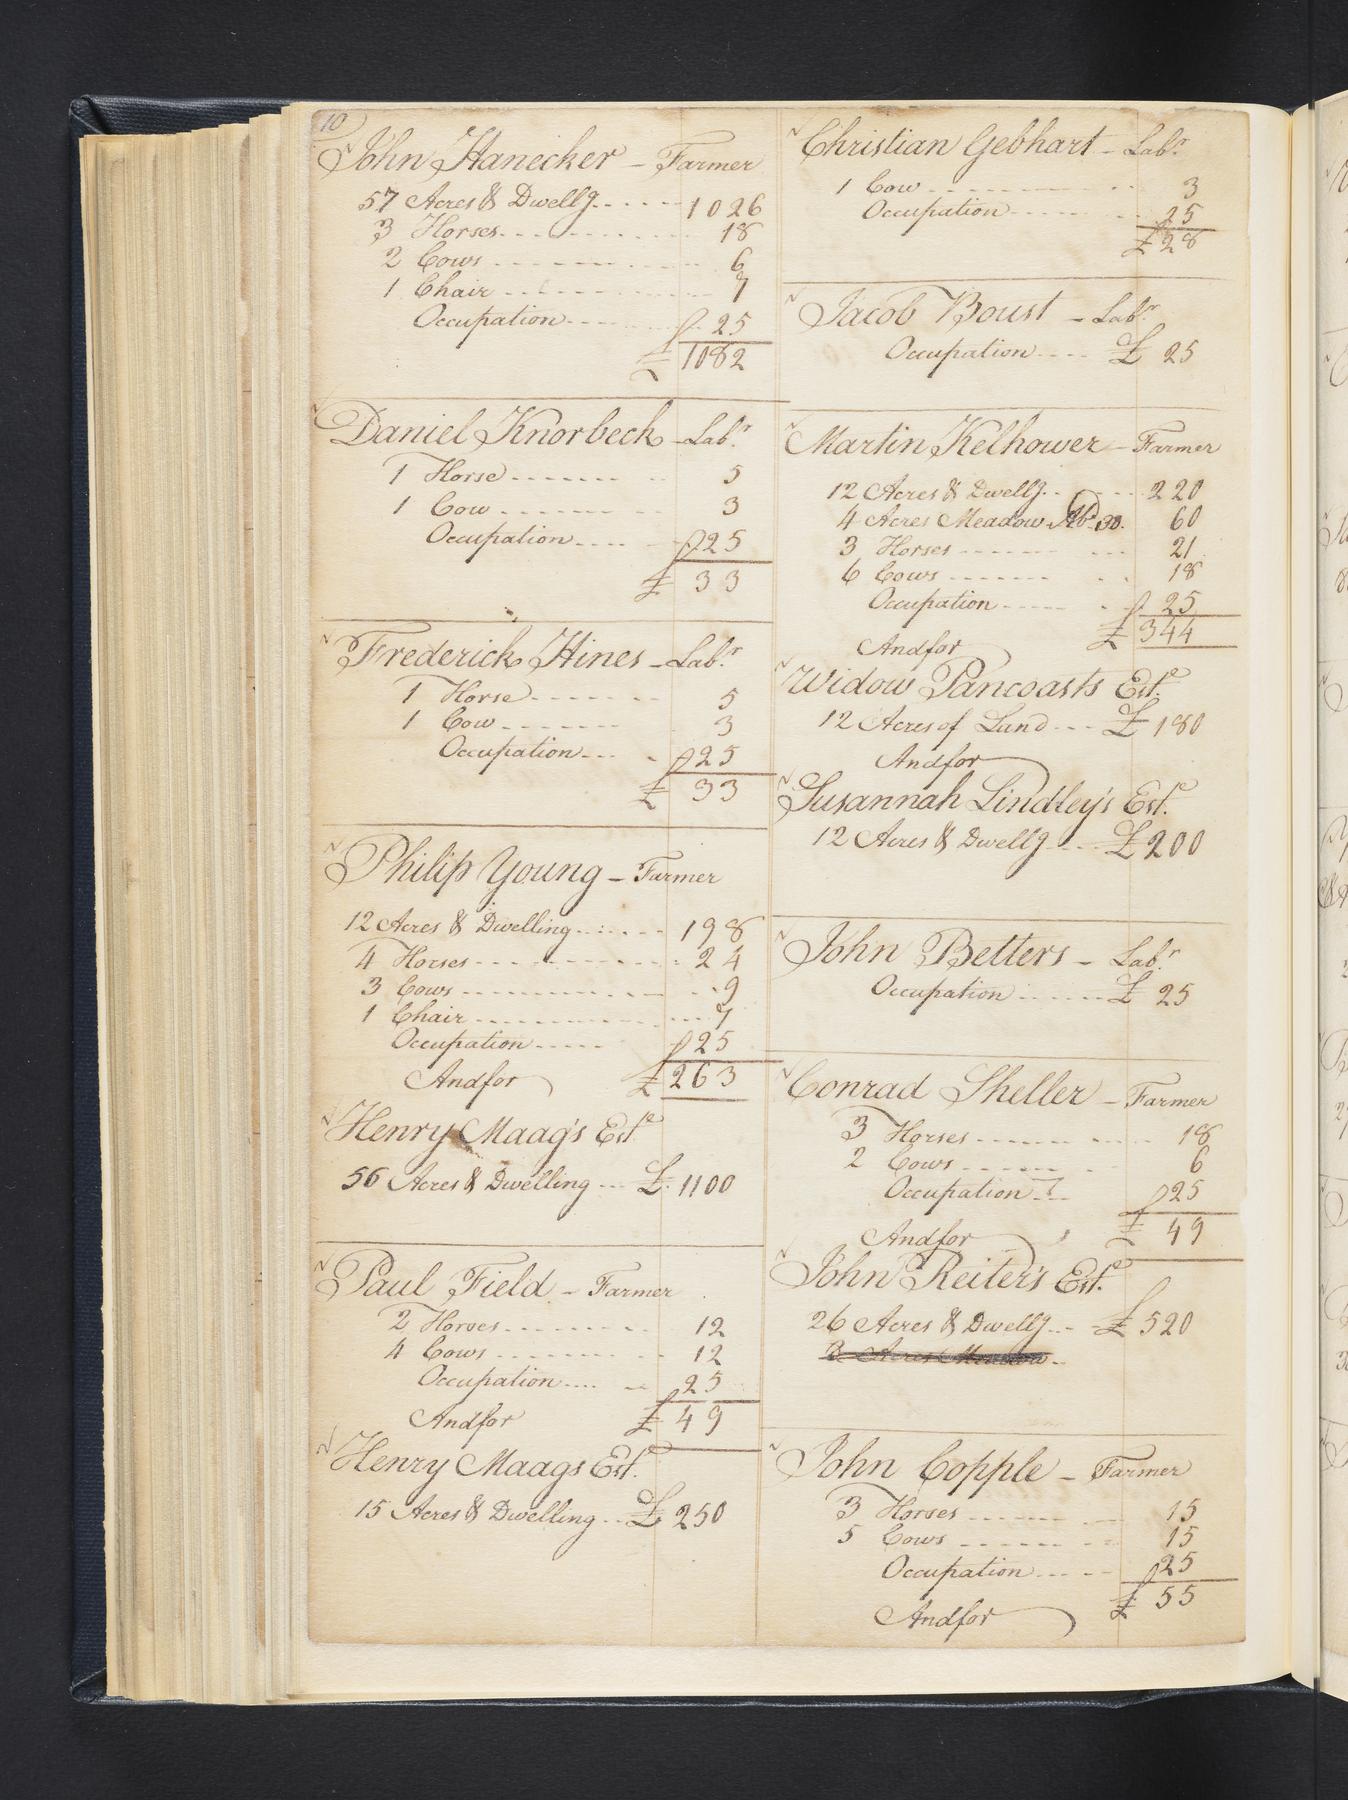 10
John Hanecker - Farmer
57 Acres & Dwellg. 1026
3 Horses 18
2 Cows 6
1 Chair 7
Occupation 25
£ 1082
Daniel Knorbeck - Labr.
1 Horse 5
1 Cow 3
Occupation 25
£ 33
Frederick Hines - Labr.
1 Horse 5
1 Cow 3
Occupation 25
£ 33
Philip Young - Farmer
12 Acres & Dwelling 198
4 Horses 24
3 Cows 9
1 Chair 7
Occupation 25
And for £ 263
Henry Maag's Este.
56 Acres & Dwelling £ 1100
Paul Field - Farmer
2 Horses 12
4 Cows 12
Occupation 25
And for £ 49
Henry Maags Este.
15 Acres & Dwelling £ 250
Christian Gebhart - Labr.
1 Cow 3
Occupation 25
£ 28
Jacob Boust - Labr.
Occupation £ 25
Martin Kelhower - Farmer
12 Acres & Dwellg. 220
4 Acres Meadow 30. 60
3 Horses 21
6 Cows 18
Occupation 25
£ 344
And for
Widow Pancoasts Este.
12 Acres of Land £ 180
And for
Susannah Lindley's Este.
12 Acres & Dwellg £ 200
John Betters - Labr.
Occupation £ 25
Conrad Sheller - Farmer
3 Horses 18
2 Cows 6
Occupation 25
And for £ 49
John Reiter's Este.
26 Acres & Dwellg. £ 520
3 Acres Meadow
John Copple - Farmer
3 Horses 15
5 Cows 15
Occupation 25
£ 55
And for